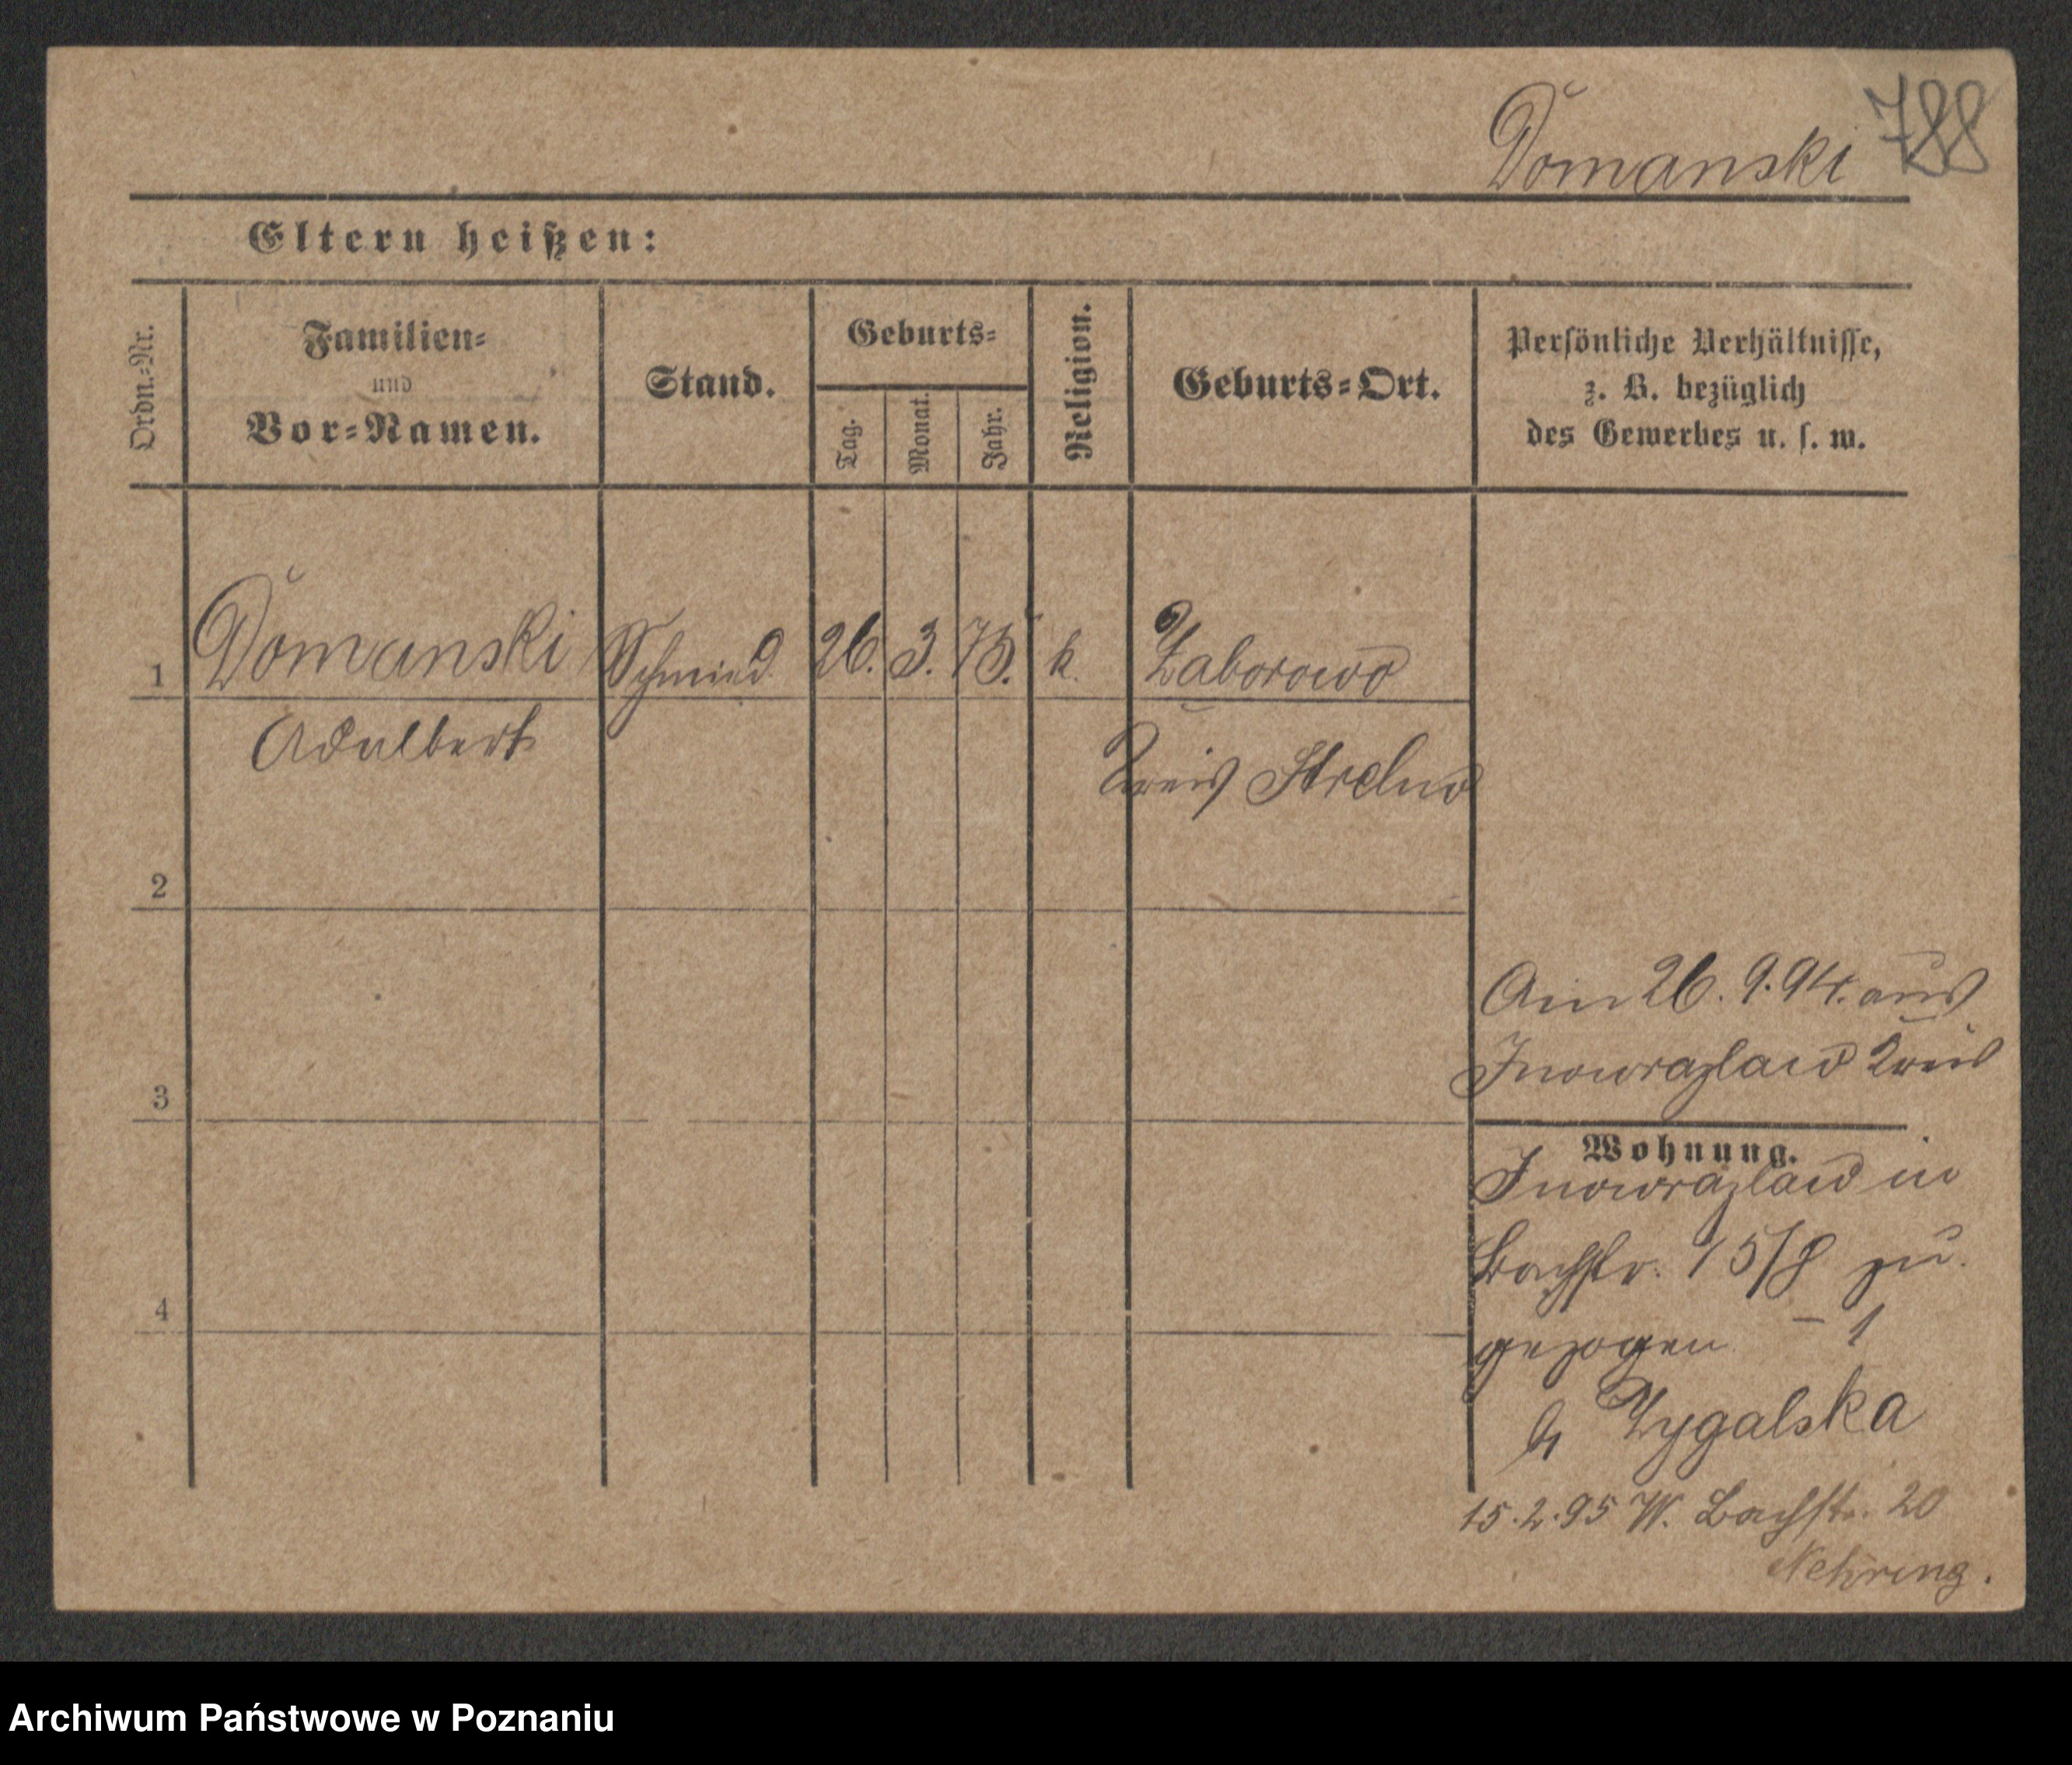 Domanski 788
Eltern heißen:
Ordn.-Nr.
Familien-
und
Vor-Namen.
Stand.
Geburts-
Tag.
Monat.
Jahr.
Religion.
Geburts-Ort.
Persönliche Verhältnisse,
z. B. bezüglich
des Gewerbes u. s. w.
1 Domanski Schmied 26. 3. 75. k. Zaborowo
Adalbert
Kreis Strelno
2
3
4
Am 26. 9. 94. aus
Inowrazlaw Kreis
Wohnung.
Inowrazlaw in
Bachstr. 15/8 zu
gezogen – 1
b/ Zygalska
15.2.95 W. Bachstr. 20
Nehring.
Archiwum Państwowe w Poznaniu